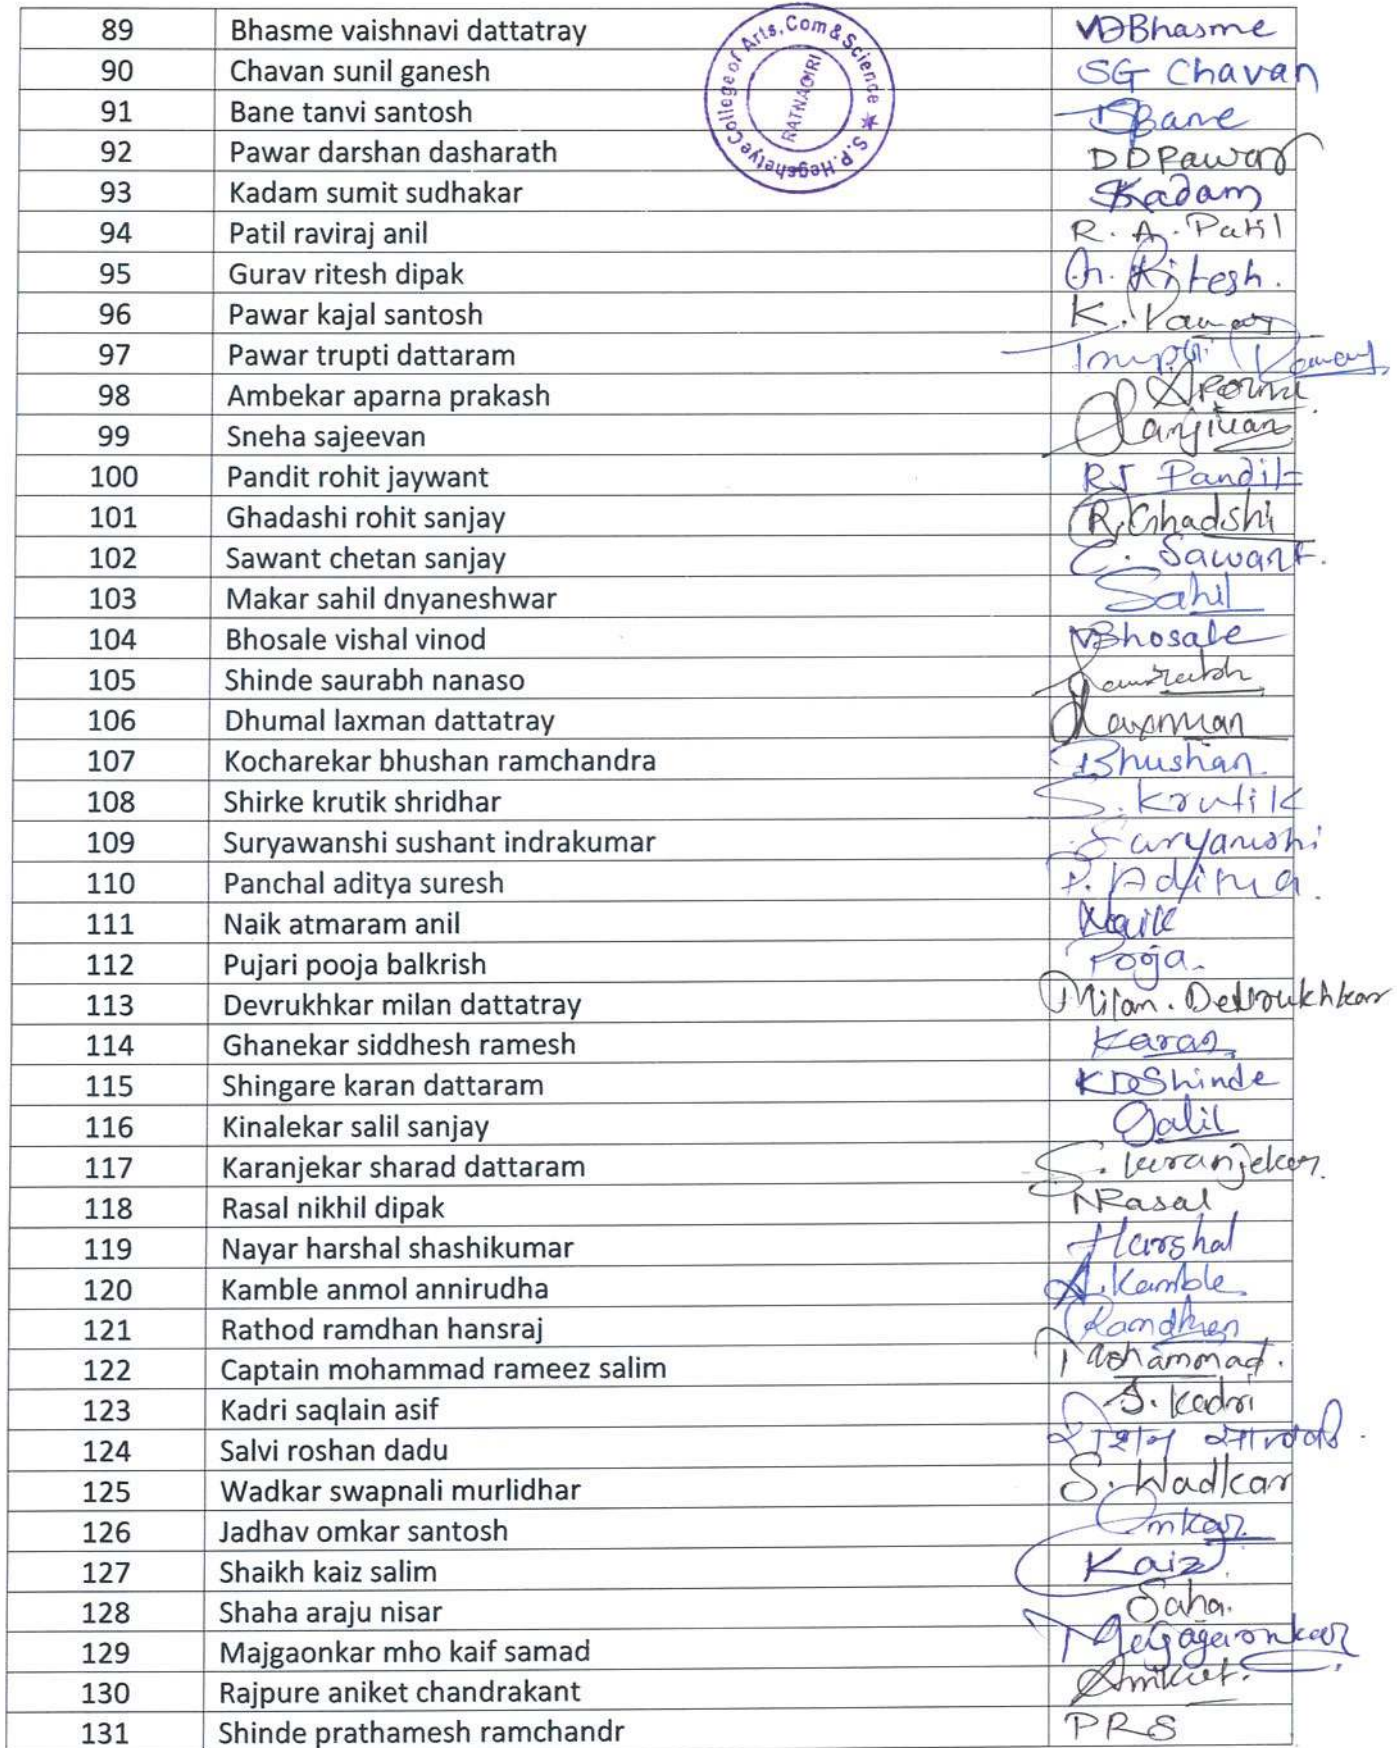 89 Bhasme vaishnavi dattatray VDBhasme
90 Chavan sunil ganesh SG Chavan
91 Bane tanvi santosh Bane
92 Pawar darshan dasharath DDPawar
93 Kadam sumit sudhakar Skadam
94 Patil raviraj anil R. A. Patil
95 Gurav ritesh dipak G. Ritesh.
96 Pawar kajal santosh K. Pawar
97 Pawar trupti dattaram Trupti Pawar
98 Ambekar aparna prakash
99 Sneha sajeevan
100 Pandit rohit jaywant RJ Pandit
101 Ghadashi rohit sanjay R. Ghadshi
102 Sawant chetan sanjay C. Sawant.
103 Makar sahil dnyaneshwar Sahil
104 Bhosale vishal vinod VBhosale
105 Shinde saurabh nanaso
106 Dhumal laxman dattatray Laxman
107 Kocharekar bhushan ramchandra Bhushan
108 Shirke krutik shridhar S. Krutik
109 Suryawanshi sushant indrakumar
110 Panchal aditya suresh
111 Naik atmaram anil Naik
112 Pujari pooja balkrish Pooja.
113 Devrukhkar milan dattatray Milan. Devrukhkar
114 Ghanekar siddhesh ramesh Karan
115 Shingare karan dattaram KDShinde
116 Kinalekar salil sanjay Salil
117 Karanjekar sharad dattaram S. Karanjekar
118 Rasal nikhil dipak NRasal
119 Nayar harshal shashikumar Harshal
120 Kamble anmol annirudha A. Kamble
121 Rathod ramdhan hansraj Ramdhan
122 Captain mohammad rameez salim
123 Kadri saqlain asif S. Kadri
124 Salvi roshan dadu
125 Wadkar swapnali murlidhar S. Wadkar
126 Jadhav omkar santosh Omkar
127 Shaikh kaiz salim Kaiz
128 Shaha araju nisar Saha.
129 Majgaonkar mho kaif samad
130 Rajpure aniket chandrakant
131 Shinde prathamesh ramchandr PRS
S.P. Hegshetye College of Arts, Com & Science ★
RATNAGIRI